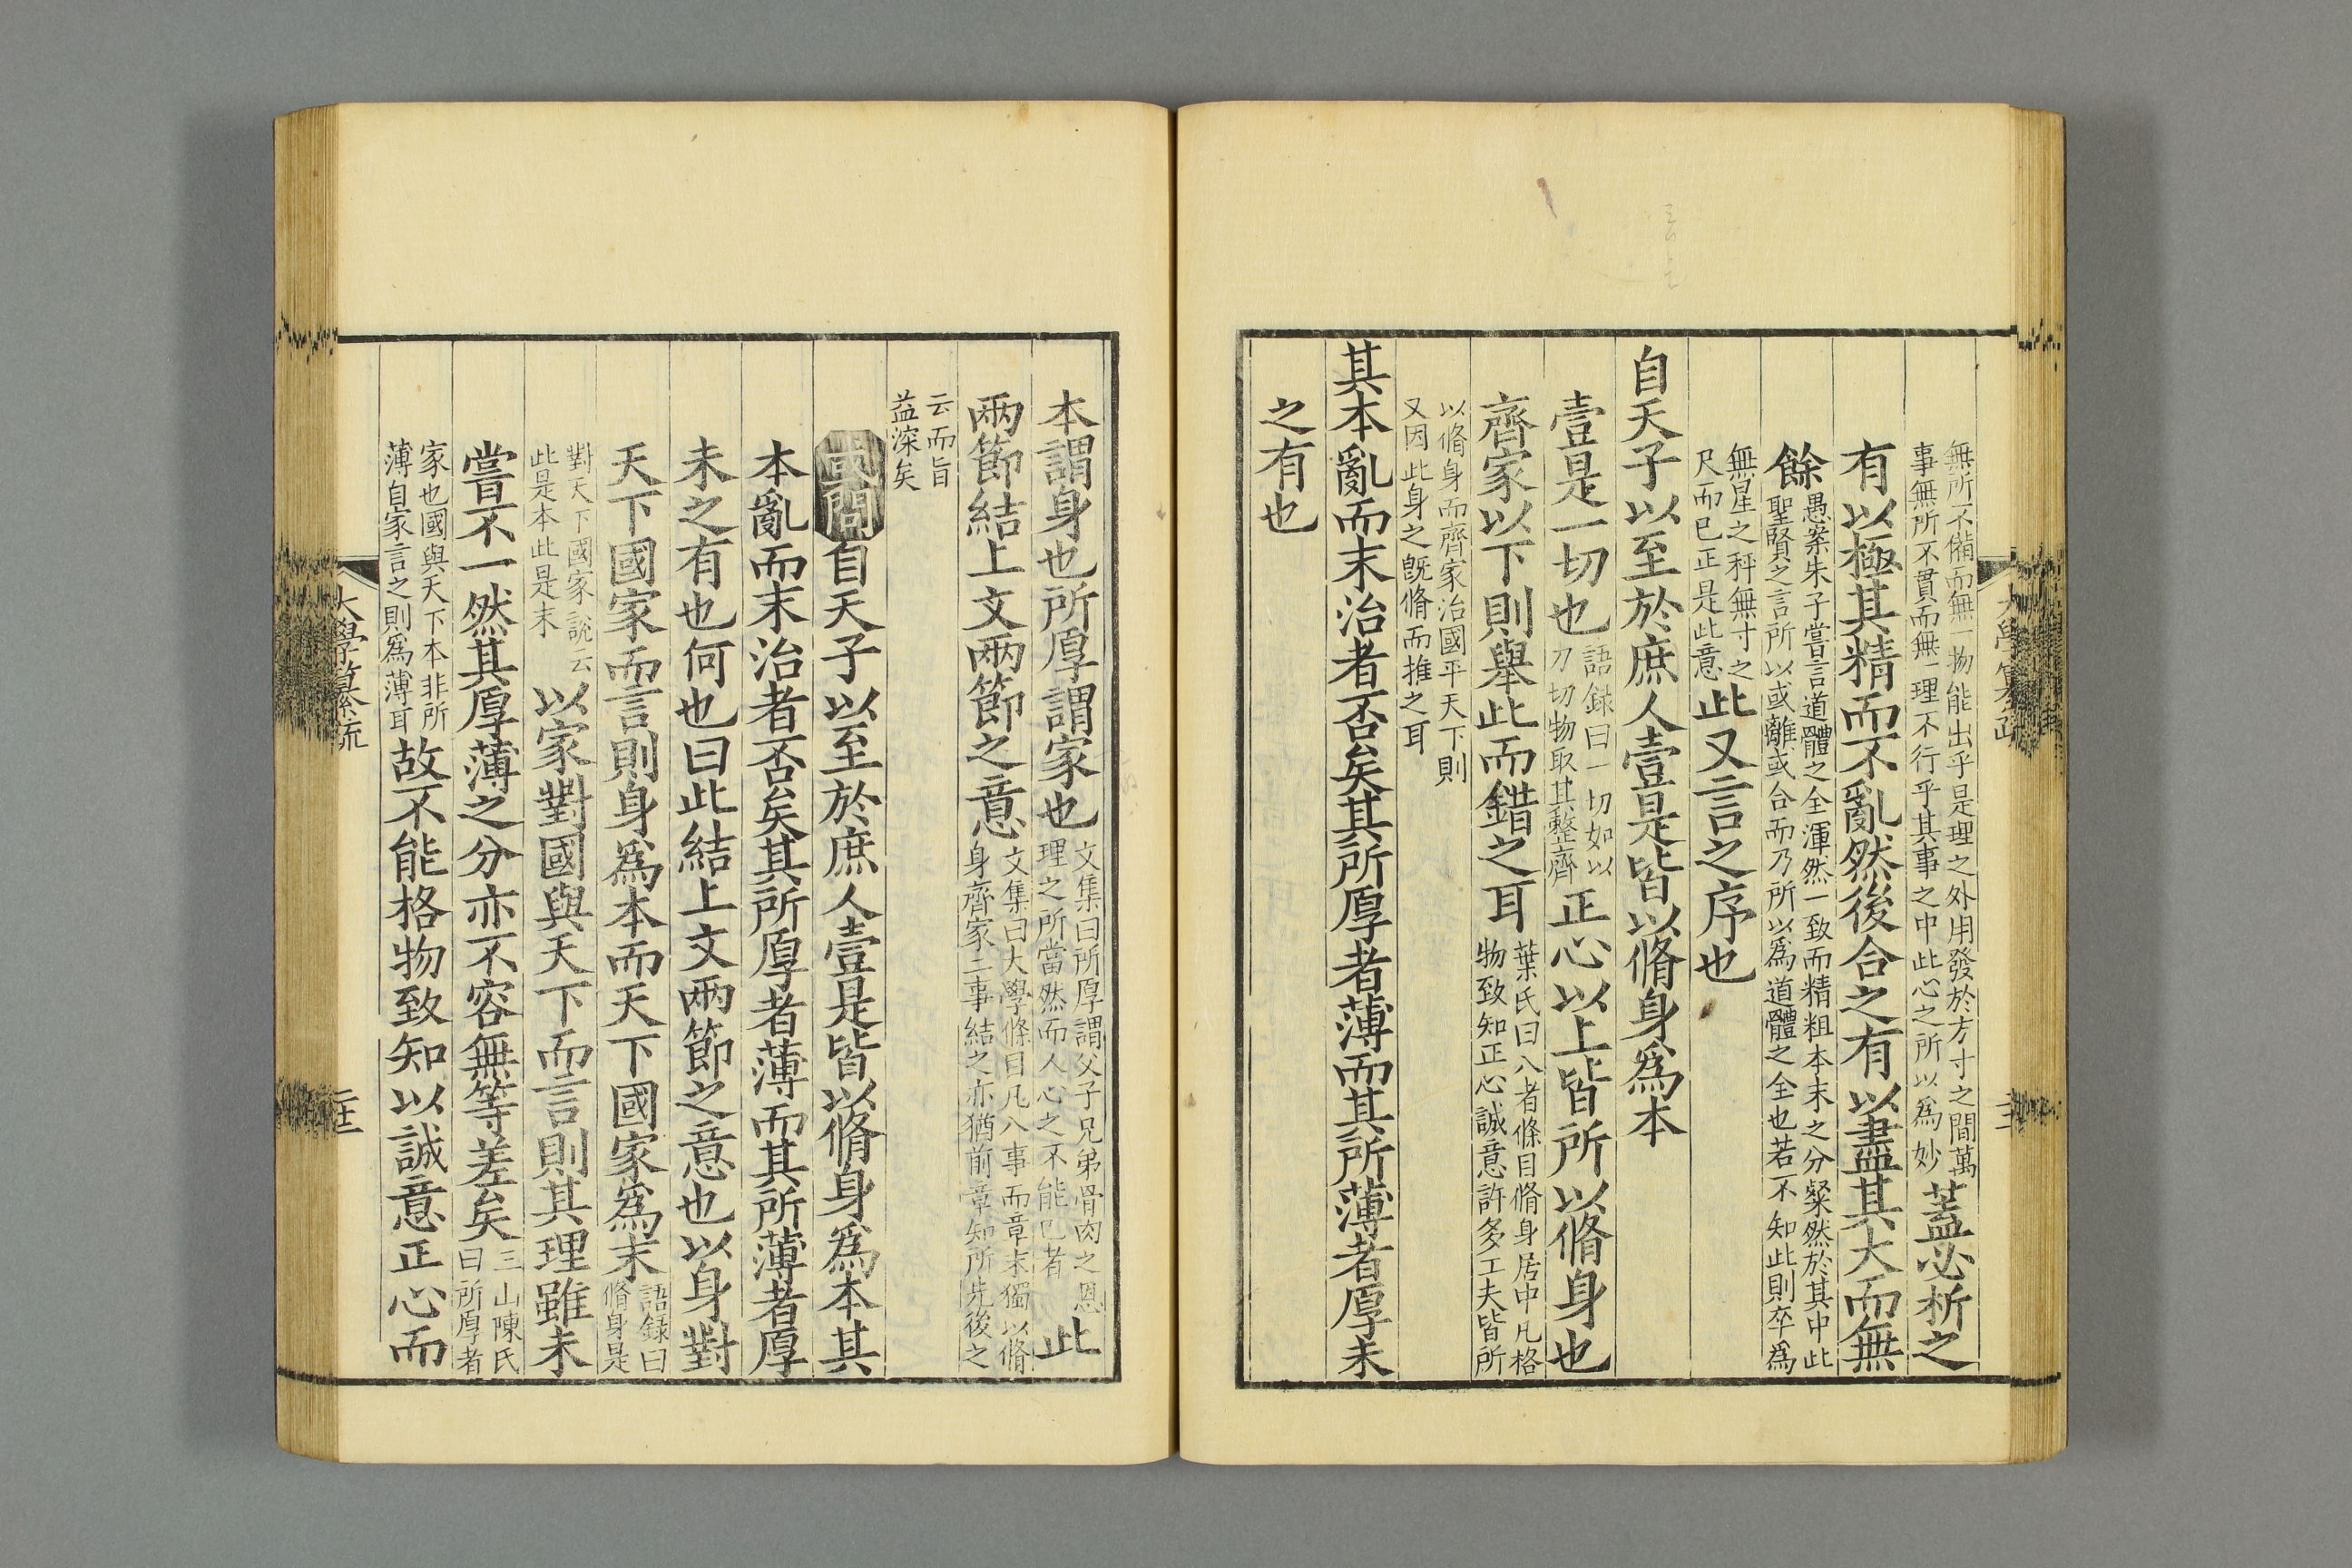 無所不備而無一物能出乎是理之外用發於方寸之間萬
事無所不貫而無一理不行乎其事之中此心之所以為妙
蓋必析之
有以極其精而不亂然後合之有以盡其大而無
餘
愚案朱子嘗言道體之全渾然一致而精粗本末之分粲然於其中此
聖賢之言所以或離或合而乃所以為道體之全也若不知此則卒為
無星之秤無寸之
尺而已正是此意
此又言之序也
自天子以至於庶人壹是皆以脩身爲本
壹是一切也
語録曰一切如以
刀切物取其整齊
正心以上皆所以脩身也
齊家以下則舉此而錯之耳
葉氏曰八者條目脩身居中凡格
物致知正心誠意許多工夫皆所
以脩身而齊家治國平天下則
又因此身之旣脩而推之耳
其本亂而末治者否矣其所厚者薄而其所薄者厚未
之有也
本謂身也所厚謂家也
文集曰所厚謂父子兄弟骨肉之恩
理之所當然而人心之不能已者
此
兩節結上文兩節之意
文集曰大學條目凡八事而章末獨以脩
身齊家二事結之亦猶前章知所先後之
云而旨
益深矣
或問
自天子以至於庶人壹是皆以脩身爲本其
本亂而末治者否矣其所厚者薄而其所薄者厚
未之有也何也曰此結上文兩節之意也以身對
天下國家而言則身爲本而天下國家爲末
語録曰
脩身是
對天下國家說云
此是本此是末
以家對國與天下而言則其理雖未
嘗不一然其厚薄之分亦不容無等差矣
三山陳氏
曰所厚者
家也國與天下本非所
薄自家言之則爲薄耳
故不能格物致知以誠意正心而
大學纂疏